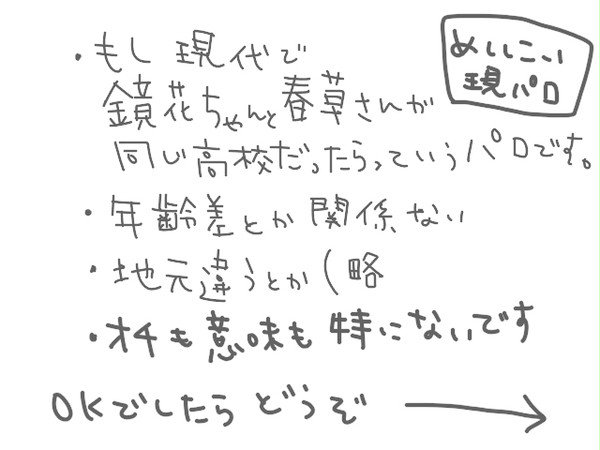 めいこい
現パロ
・もし現代で
鏡花ちゃんと春草さんが
同じ高校だったらっていうパロです。
・年齢差とか関係ない
・地元違うとか(略
・オチも意味も特にないです
OKでしたらどうぞ→